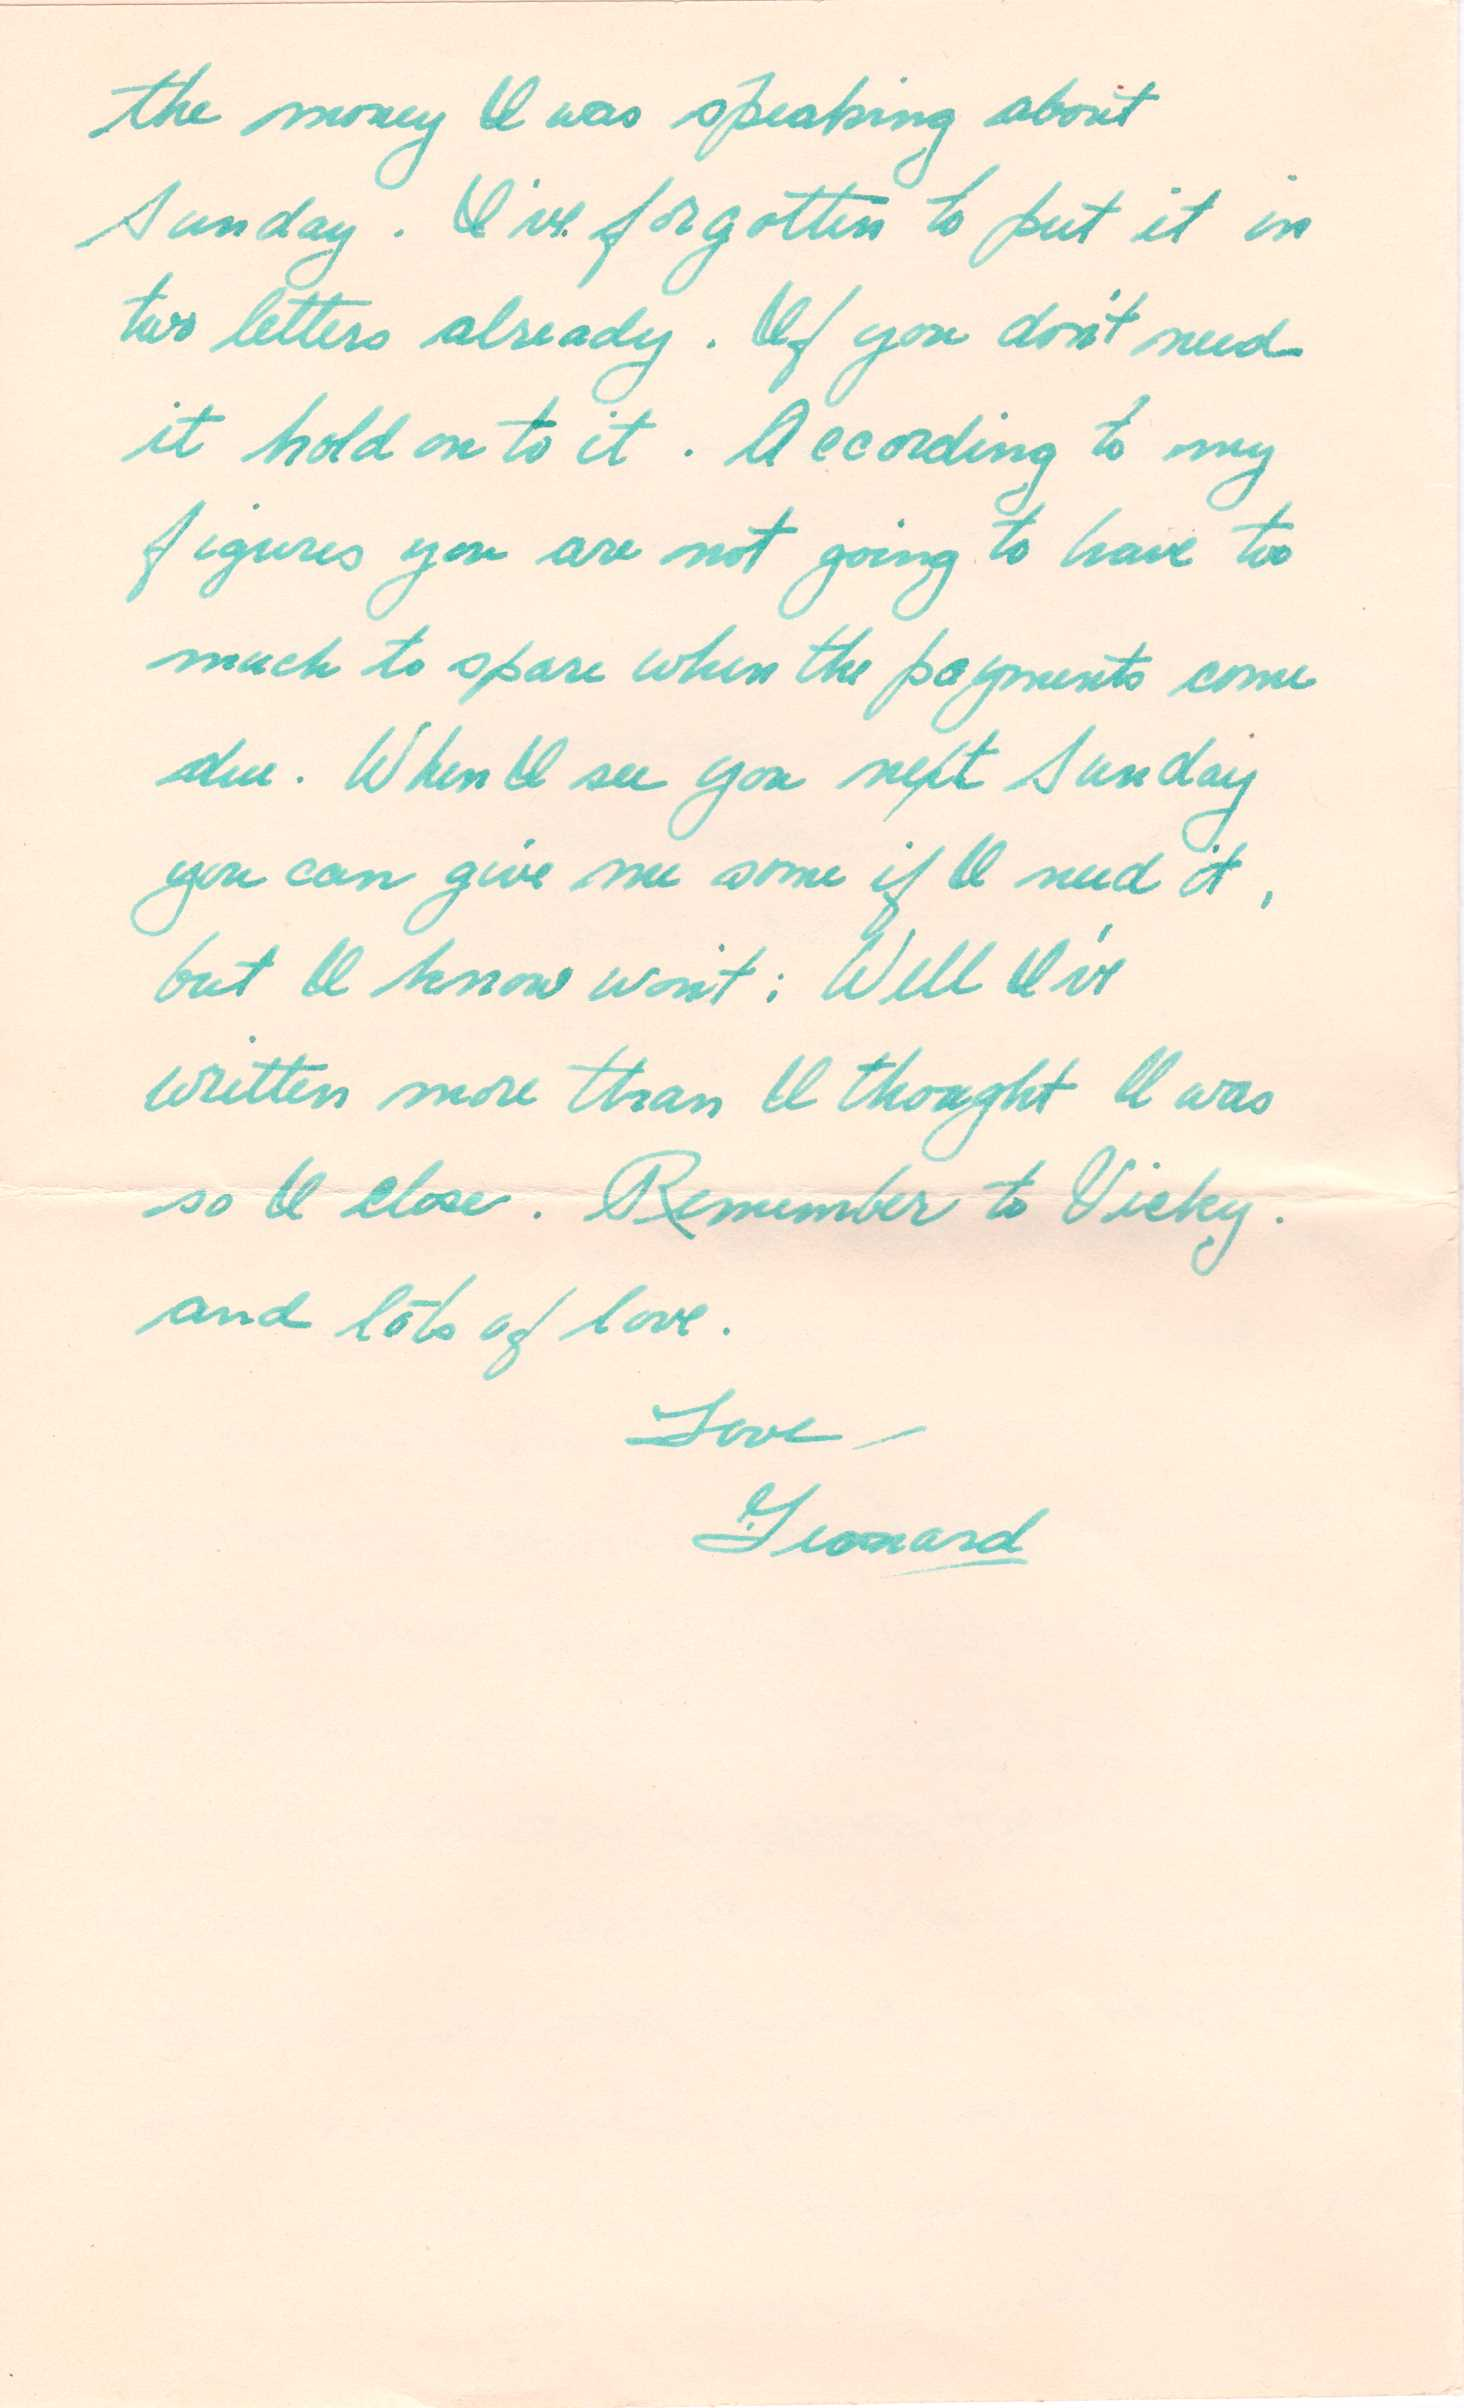 the money I was speaking about
Sunday. I've forgotten to put it in
two letters already. If you don't need
it hold on to it. According to my
figures you are not going to have too
much to spare when the payments come
due. When I see you next Sunday
you can give me some if I need it,
but I know won't; Well I've
written more than I thought I was
so I close. Remember to Vicky.
and lots of love.
Love –
Leonard